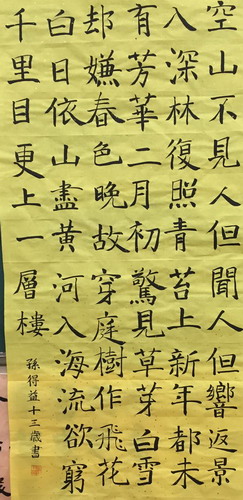 空山不見人但聞人但響返景
入深林復照青苔上新年都未
有芳華二月初驚見草芽白雪
却嫌春色晚故穿庭樹作飛花
白日依山盡黃河入海流欲窮
千里目更上一層樓
孫得益十三歲書